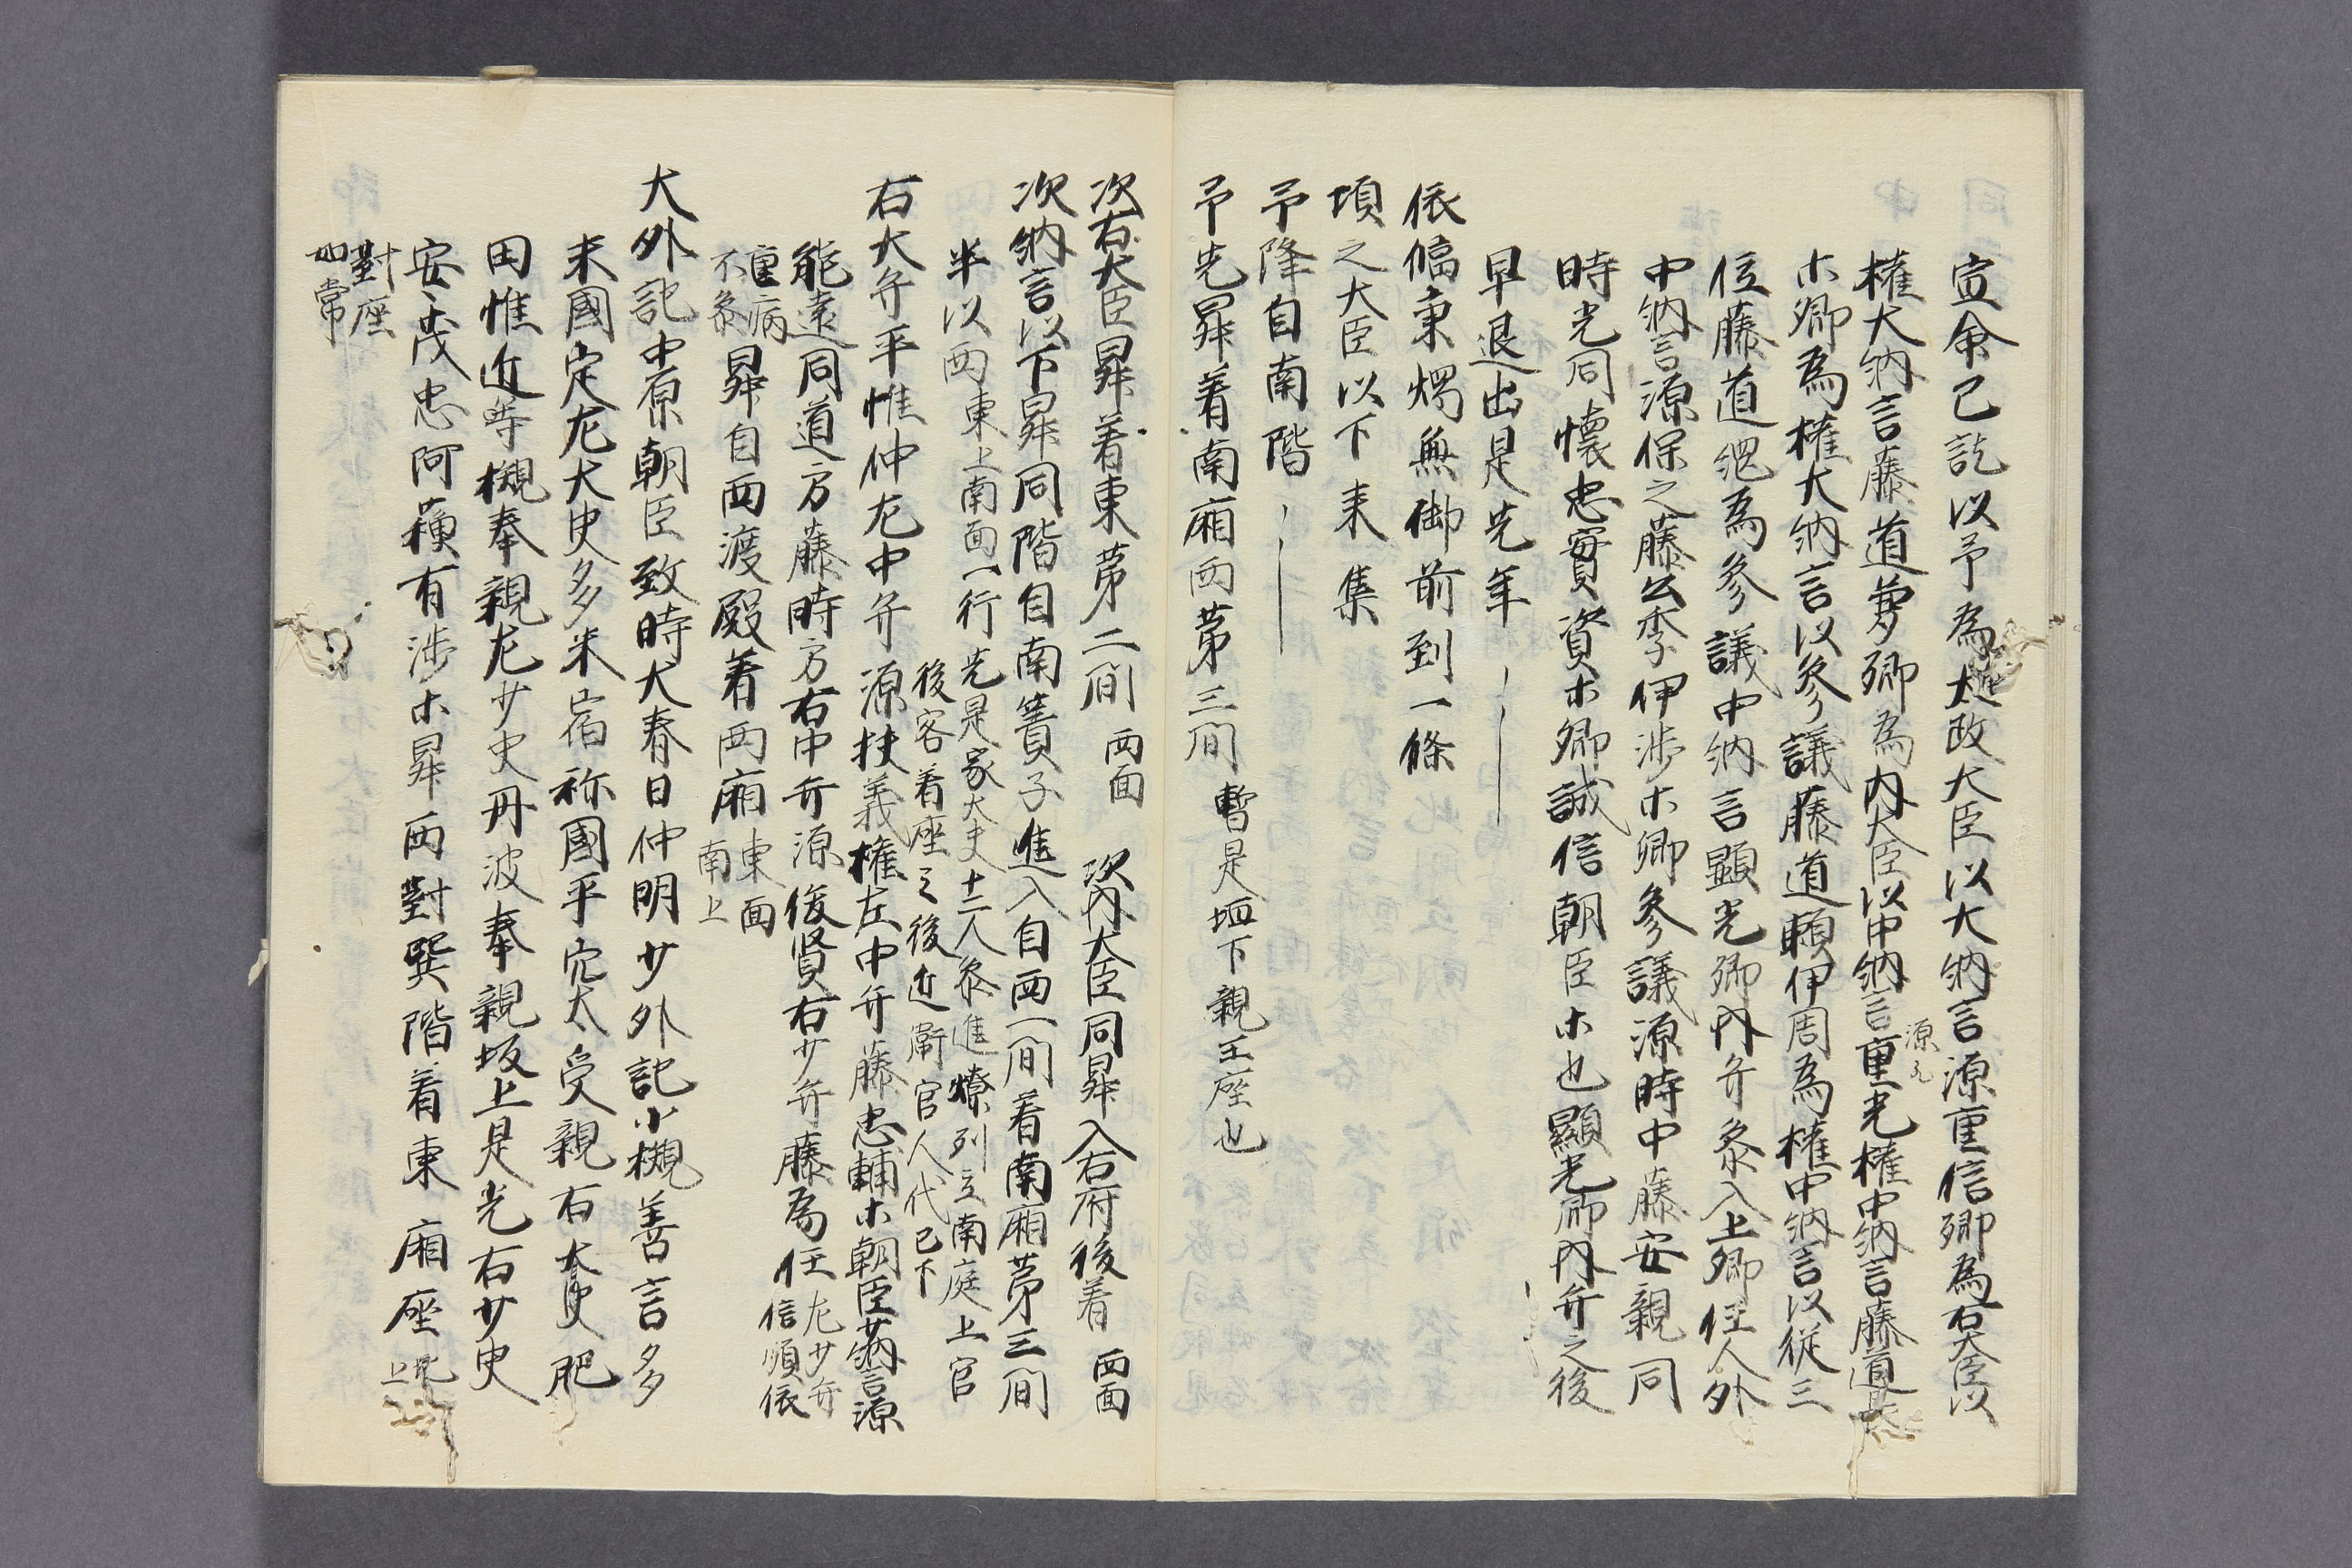 宣命已訖以予為太政大臣以大納言源重信卿為右大臣以
権大納言藤道兼卿為内大臣以中納言重光権中納言藤道長
源元
ホ卿為権大納言以参議藤道頼伊周為権中納言以従三
位藤道綱為参議中納言顕光卿内弁参入上卿任人外
中納言源保之藤公季伊渉ホ卿参議源時中藤安親同
時光同懐忠實資ホ卿誠信朝臣ホ也顕光卿内弁之後
早退出是先年
依煏秉燭無御前到一條
頃之大臣以下来集
予降自南階
予先昇着南廂西第三間 暫是垣下親王座也
次右大臣昇着東第二間 西面 次内大臣同昇入右府後着 西面
次納言以下昇同階自南簀子進入自西一間着南廂第三間
半以西東上南面一行 先是家大夫十二人参進燎列立南庭上官
後客着座之後近衛官人代已下
右大弁平惟仲左中弁源扶義権左中弁藤忠輔ホ朝臣蒳言源
能遠同道方藤時方右中弁源俊賢右少弁藤為任 左少弁
信順依
重病
不参 昇自西渡殿着西廂 東面
南上
大外記中原朝臣致時大春日仲明少外記小槻善言多
米國定左大史多米宿祢國平穴太受親右大史肥
田惟近等槻奉親左少史丹波奉親坂上是光右少史
安茂忠阿蘓有渉ホ昇西對巽階着東廂座 北
上
對座
如常